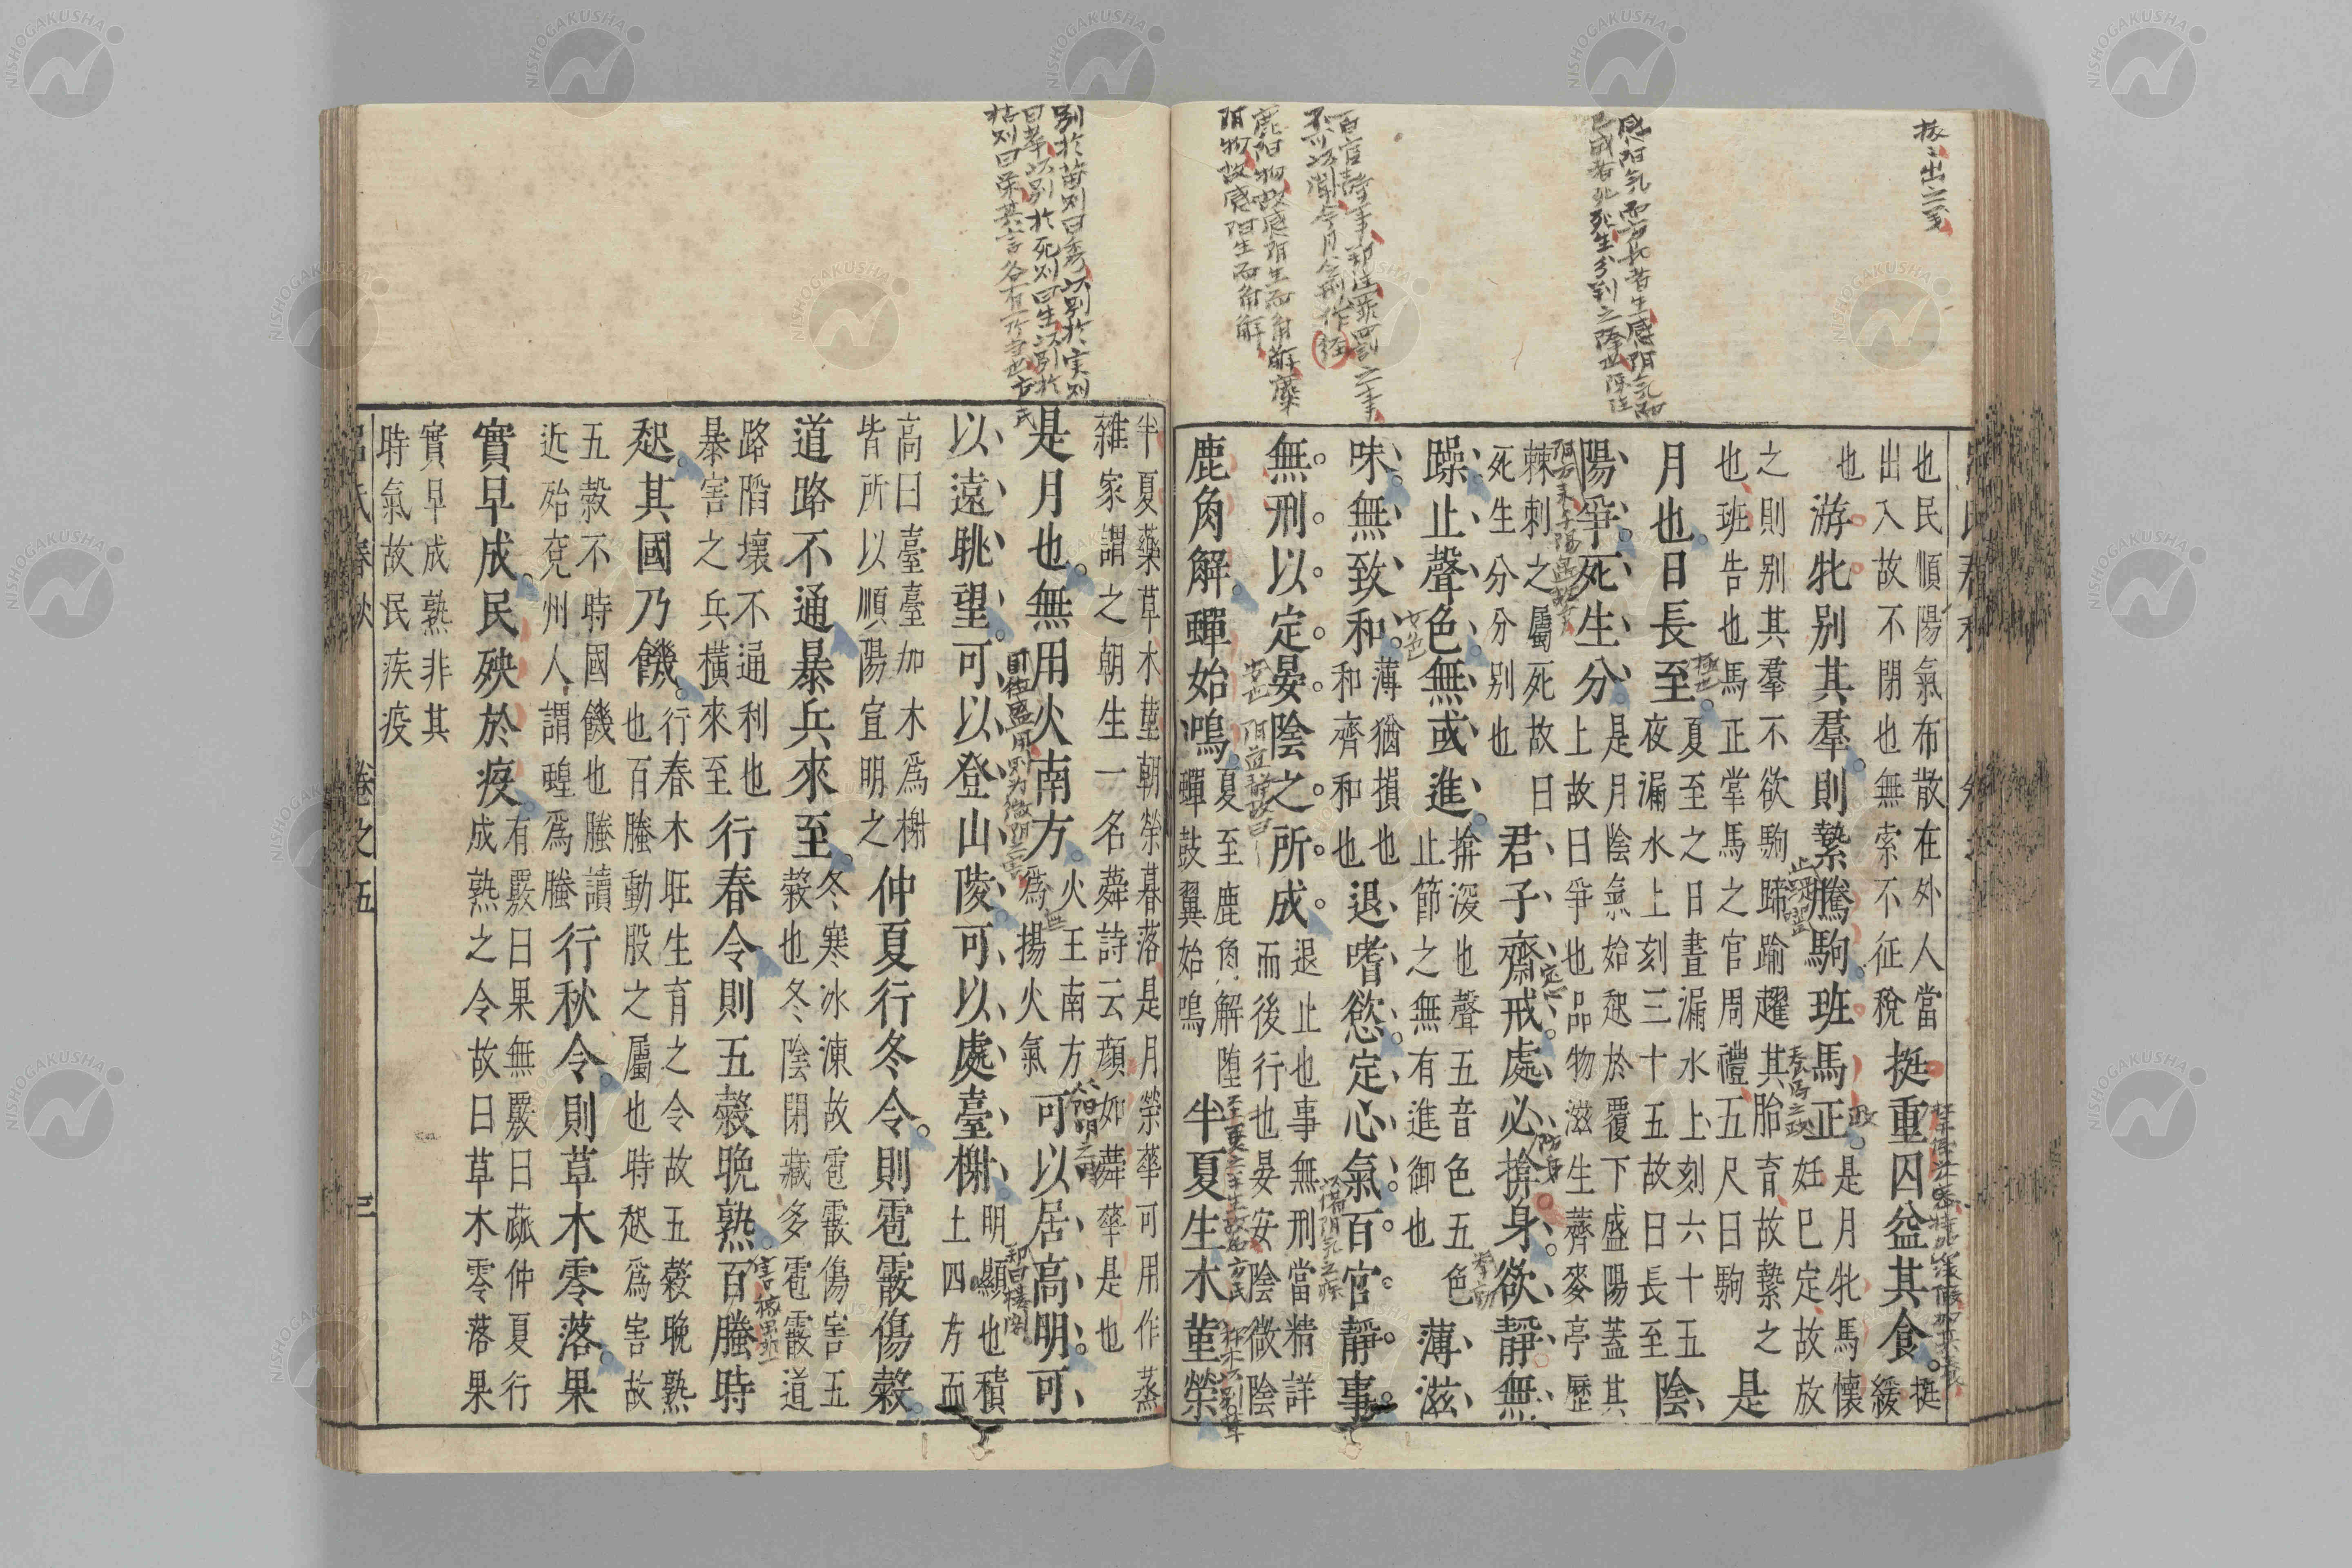 挺〻出之義
感陽气而方長者生感陰气
已成者死
百官靜事鄭注罪罰之事
不可以聞今月令刑作徑
鹿陽物故感陰生而角解麋
陰物故感陽生而角解
也民順陽氣布散在外人當
出入故不閉也無索不征稅
挺重囚益其食
挺
緩
也
游牝別其羣則縶騰駒班馬正
是月牝馬懷
妊巳定故放
之則別其羣不欲駒蹄踰趯其胎育故縶之
也班告也馬正掌馬之官周禮五尺曰駒
是
月也日長至
夏至之日晝漏水上刻六十五
夜漏水上刻三十五故曰長至
陰
陽爭死生分
是月陰氣始起於覆下盛陽蓋其
上故曰爭也品物滋生薺麥亭歷
棘刺之屬死故曰
死生分分別也
君子齋戒處必揜身欲靜無
躁止聲色無或進
揜深也聲五音色五色
止節之無有進御也
薄滋
味無致和
薄猶損也
和齊和也
退嗜慾定心氣百官靜事
無刑以定晏陰之所成
退止也事無刑當精詳
而後行也晏安陰微陰
鹿角解蟬始鳴
夏至鹿角解墮
蟬鼓翼始鳴
半夏生木堇榮
別於苗則曰秀以別於実則
曰華以別於死則曰生以別於
枯則曰栄其言各有所主也方氏
半夏藥草木堇朝榮暮落是月榮華可用作蒸
雜家謂之朝生一名蕣詩云顏如蕣華是也
是月也無用火南方
火王南方
爲揚火氣
可以居高明可
以遠眺望可以登山陵可以處臺榭
明顯也積
土四方而
高曰臺臺加木爲榭
皆所以順陽宣明之
仲夏行冬令則雹霰傷穀
道路不通暴兵來至
冬寒冰凍故雹霰傷害五
穀也冬陰閉藏多雹霰道
路陷壞不通利也
暴害之兵橫來至
行春令則五穀晚熟百螣時
起其國乃饑
行春木王生育之令故五穀晚熟
也百螣動股之屬也時起爲害故
五穀不時國饑也螣讀
近殆兗州人謂蝗爲螣
行秋令則草木零落果
實早成民殃於疫
有覈曰果無覈曰蓏仲夏行
成熟之令故曰草木零落果
實早成熟非其
時氣故民疾疫
呂氏春秋 卷之五 三